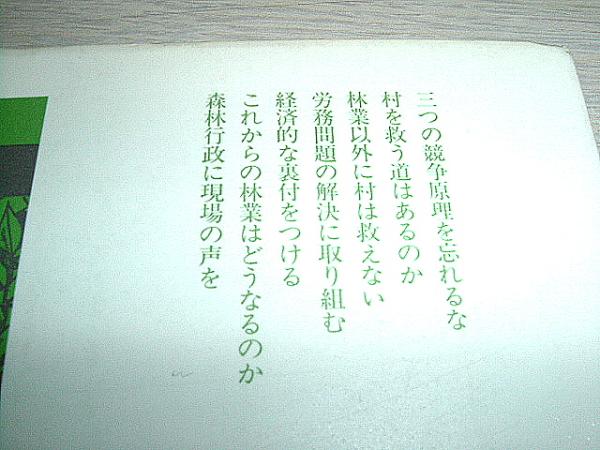 三つの競争原理を忘れるな
村を救う道はあるのか
林業以外に村は救えない
労務問題の解決に取り組む
経済的な裏付をつける
これからの林業はどうなるのか
森林行政に現場の声を